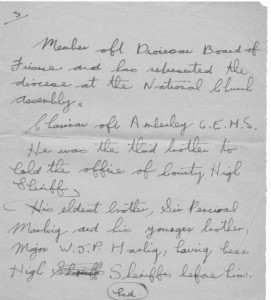 3
Member oft Diocesan Board of
Finance and has represented the
diocese at the National Church
Assembly.
Chairman oft Amberley C.E.M.S.
He was the third brother to
hold the office of County High
Sheriff,
His eldest brother, Sir Percival
Marling and his younger brother,
Major W.J.P. Marling, having been
High Sheriffs before him.
End.